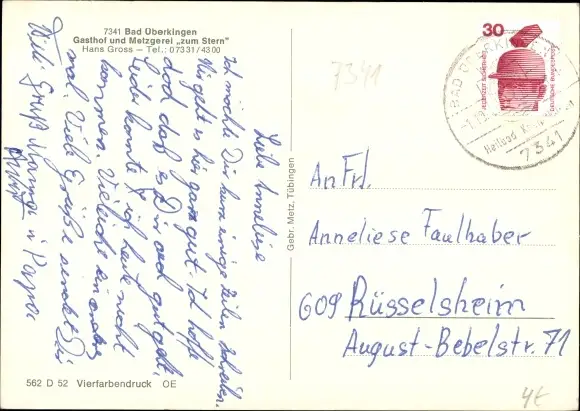 7341 Bad Überkingen
Gasthof und Metzgerei „zum Stern"
Hans Gross – Tel.: 07331/4300
Liebe Anneliese
Ich möchte Dir kurz einige Zeilen schreiben.
Wir geht es hier ganz gut. Ich hoffe
doch daß es Dir auch gut geht.
Leider konnte ich heute nicht
kommen. Vieleicht ein andres
mal. Viele Grüße sendet Dir
Viele Grüß Mama u Papa
Gebr. Metz, Tübingen
562 D 52 Vierfarbendruck OE
7341
30
JEDERZEIT SICHERHEIT
DEUTSCHE BUNDESPOST
BAD ÜBERKINGEN
Heilbad
7341
An Frl.
Anneliese Faulhaber
609 Rüsselsheim
August-Bebelstr. 71
4€